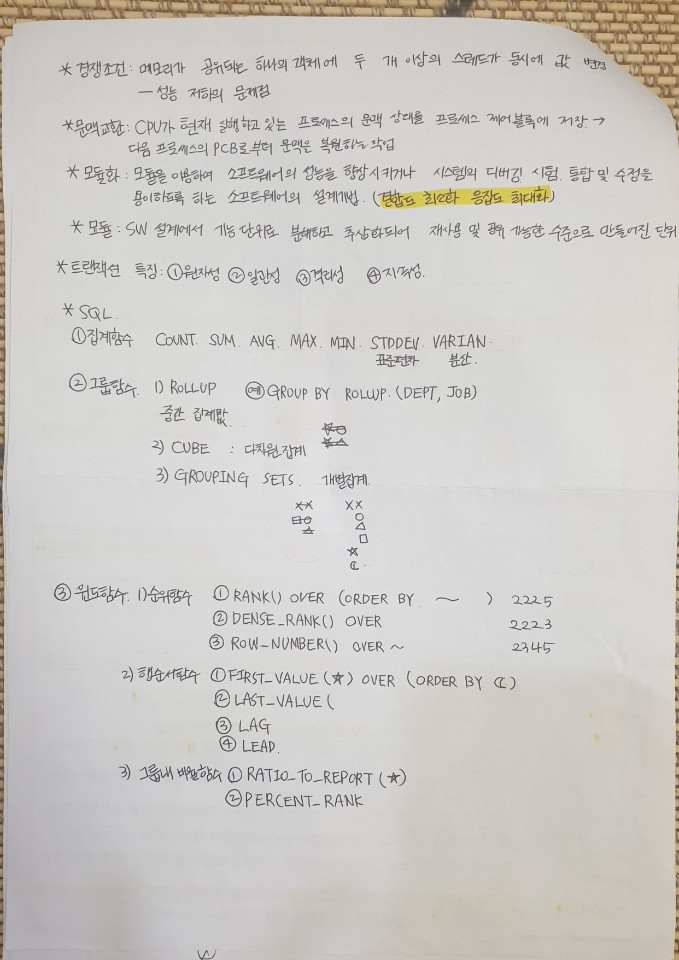 * 경쟁조건 : 메모리가 공유되는 하나의 객체에 두 개 이상의 스레드가 동시에 값 변경
— 성능 저하의 문제점
* 문맥교환 : CPU가 현재 실행하고 있는 프로세스의 문맥 상태를 프로세스 제어블록에 저장 →
다음 프로세스의 PCB로부터 문맥은 복원하는 작업
* 모듈화 : 모듈을 이용하여 소프트웨어의 성능을 향상시키거나 시스템의 디버깅, 시험, 통합 및 수정을
용이하도록 하는 소프트웨어의 설계기법. (결합도 최소화 응집도 최대화)
* 모듈 : SW 설계에서 기능단위로 분해하고 추상화되어 재사용 및 공유 가능한 수준으로 만들어진 단위
* 트랜잭션 특징 : ① 원자성 ② 일관성 ③ 격리성 ④ 지속성.
* SQL.
① 집계함수 COUNT. SUM. AVG. MAX. MIN. STDDEV. VARIAN.
표준편차 분산.
② 그룹함수. 1) ROLLUP 예 GROUP BY ROLLUP. (DEPT, JOB)
중간 집계값
2) CUBE : 다차원 집계
3) GROUPING SETS. 개별집계
☆☆ ☆☆
□○ ○
△ △
□
☆
ℂ.
③ 윈도함수. 1) 순위함수 ① RANK() OVER (ORDER BY ~ ) 2225
② DENSE_RANK() OVER 2223
③ ROW_NUMBER() OVER ~ 2345
2) 행순서함수 ① FIRST_VALUE (☆) OVER (ORDER BY ℂ)
② LAST_VALUE (
③ LAG
④ LEAD.
3) 그룹내 비율함수 ① RATIO_TO_REPORT (☆)
② PERCENT_RANK